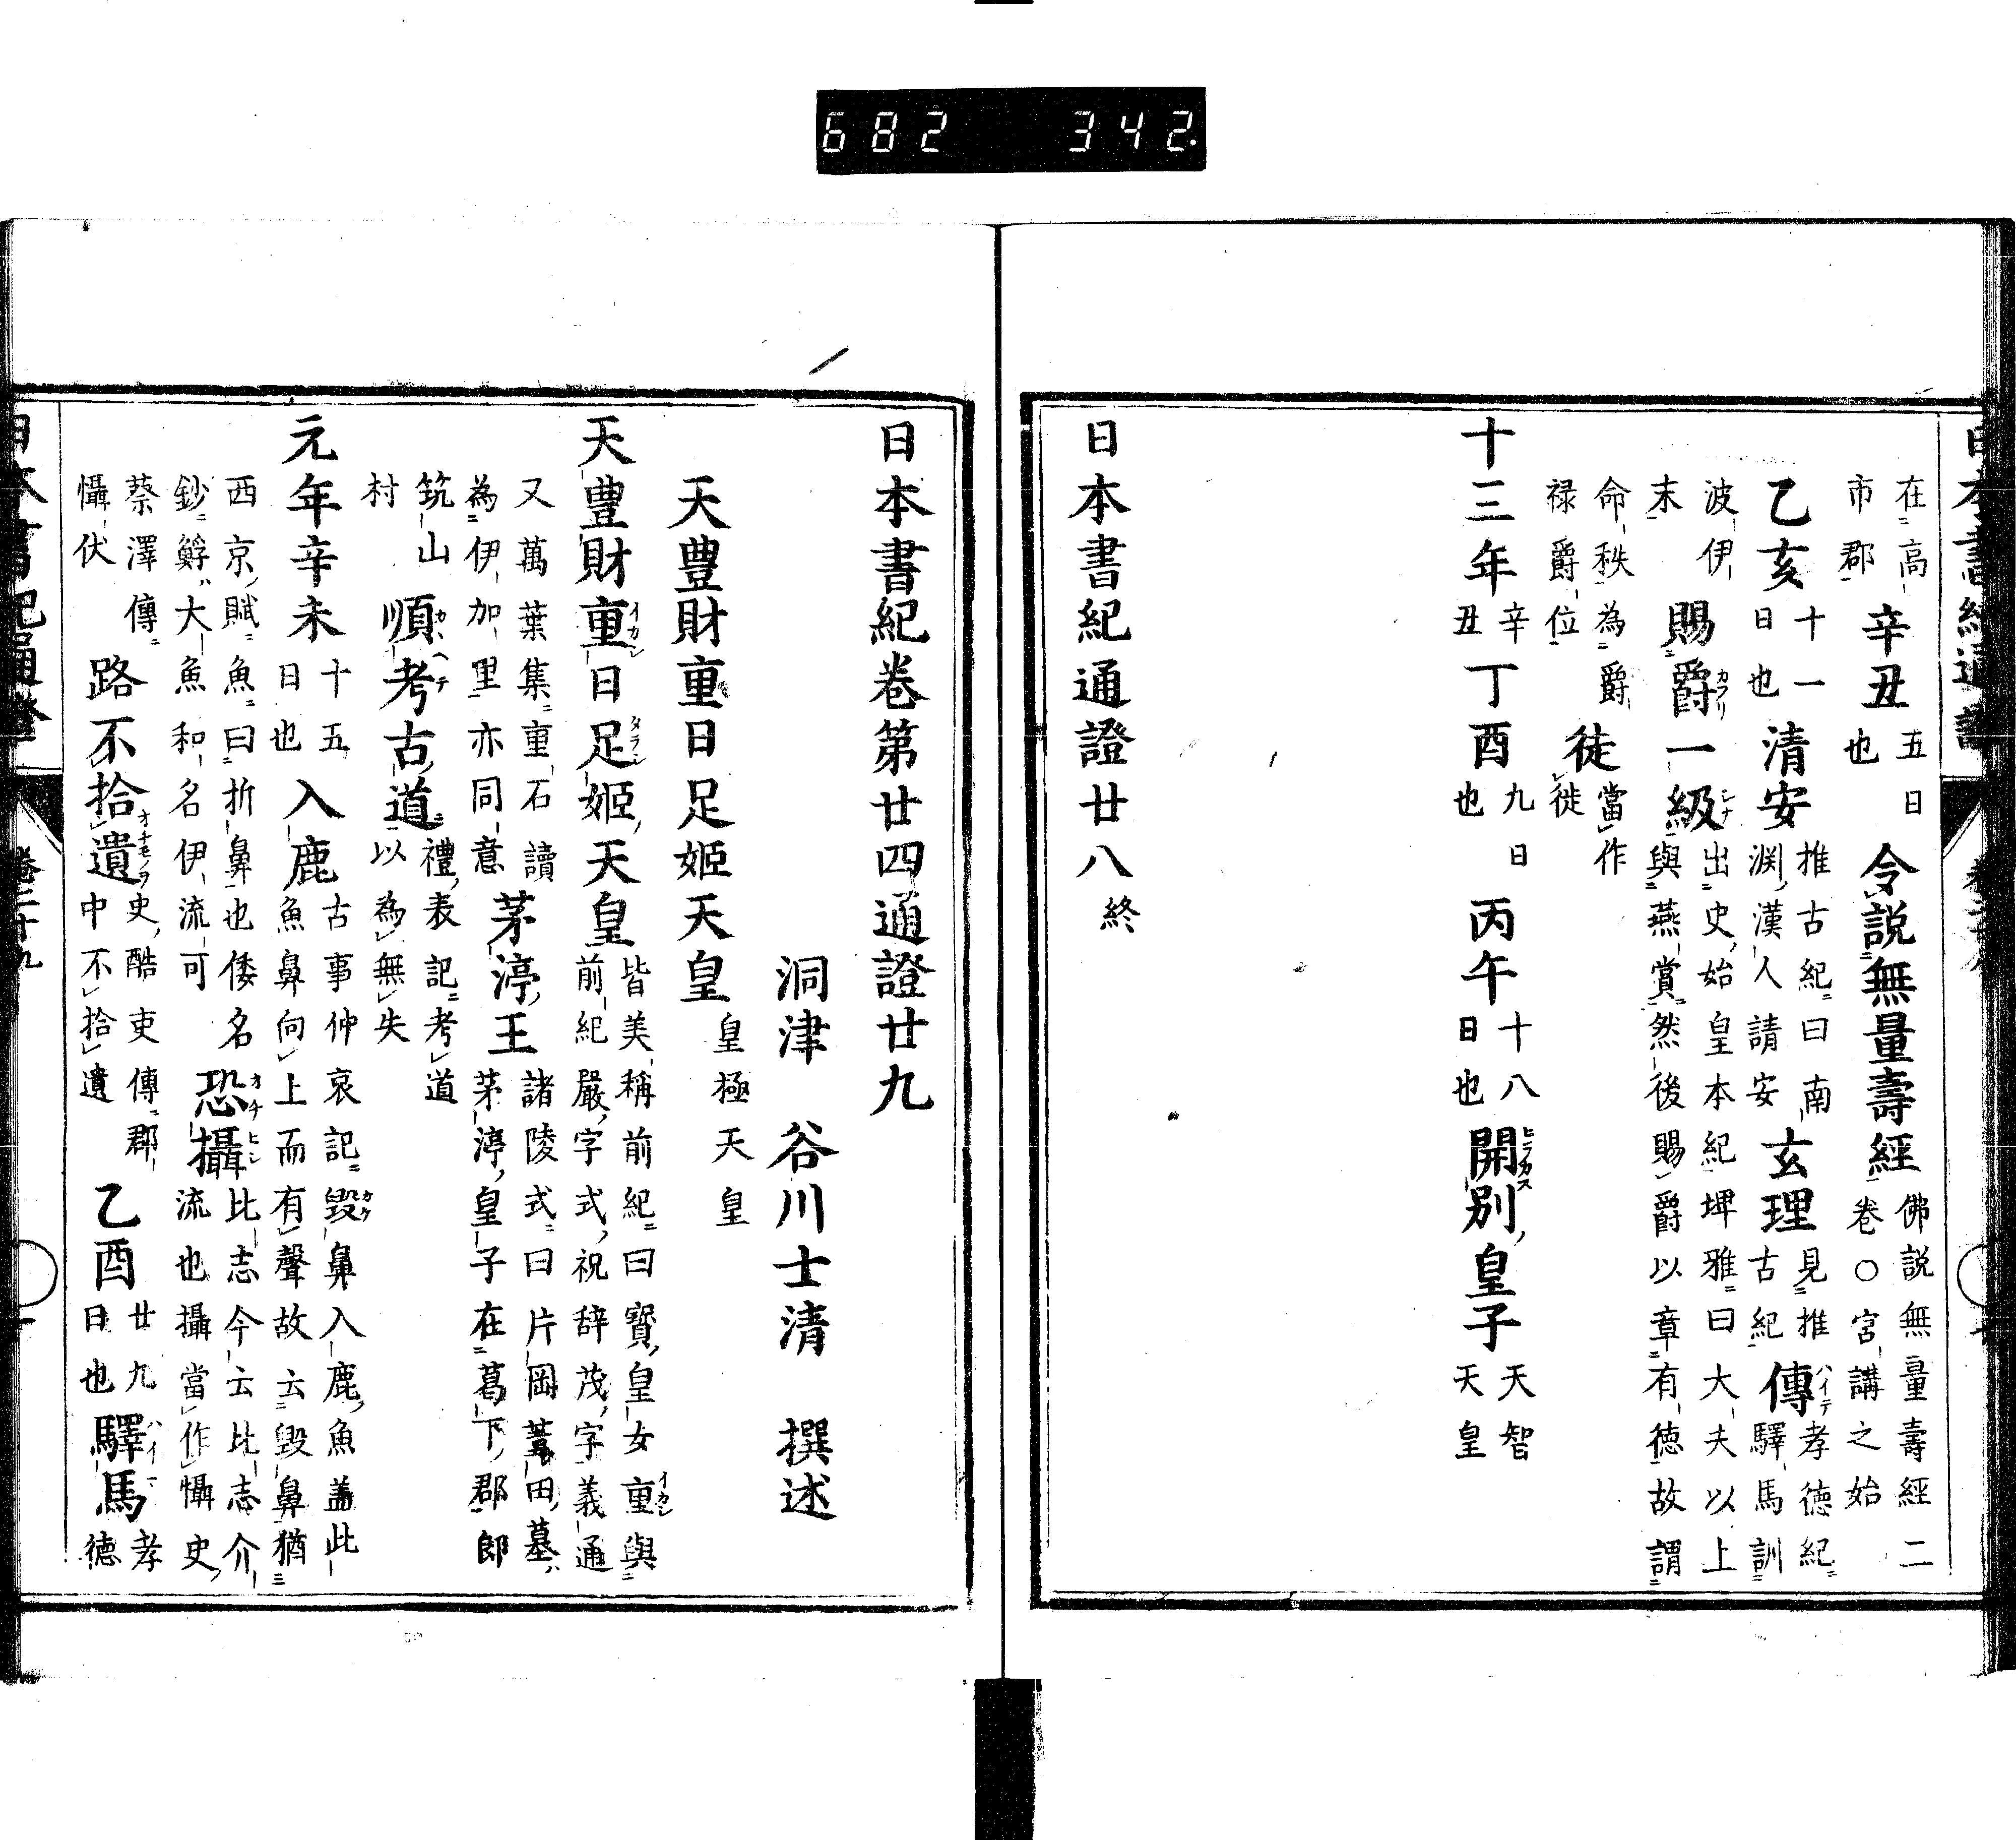 682 342
在高市郡 辛丑 五日也 令説無量壽經 佛説無量壽經二卷○宮講之始
乙亥 十一日也 清安 推古紀曰南淵漢人請安 玄理 見推古紀 傳 孝徳紀驛馬訓
波伊末 賜爵一級 出史始皇本紀埤雅曰大夫以上與燕賞然後賜爵以章有徳故謂
命秩為爵禄爵位 徒 當作徙
十三年 辛丑 丁酉 九日也 丙午 十八日也 開別皇子 天智天皇
日本書紀通證廿八 終
日本書紀卷第廿四通證廿九
洞津 谷川士清 撰述
天豊財重日足姫天皇 皇極天皇
天豊財重日足姫天皇 皆美稱前紀曰寶皇女重與前紀嚴字式祝辞茂字義通
又萬葉集重石讀為伊加里亦同意 茅渟王 諸陵式曰片岡葦田墓茅渟皇子在葛下郡郎
筑山村 順考古道 禮表記考道以為無失
元年辛未 十五日也 入鹿 古事仲哀記毀鼻入鹿魚盖此魚鼻向上而有聲故云毀鼻猶
西京賦魚曰折鼻也倭名鈔䱐大魚和名伊流可 恐攝 比志今云比志介流也攝當作懾史
蔡澤傳懾伏 路不拾遺 史酷吏傳郡中不拾遺 乙酉 廿九日也 驛馬 孝徳
日本書紀通證
卷二十九